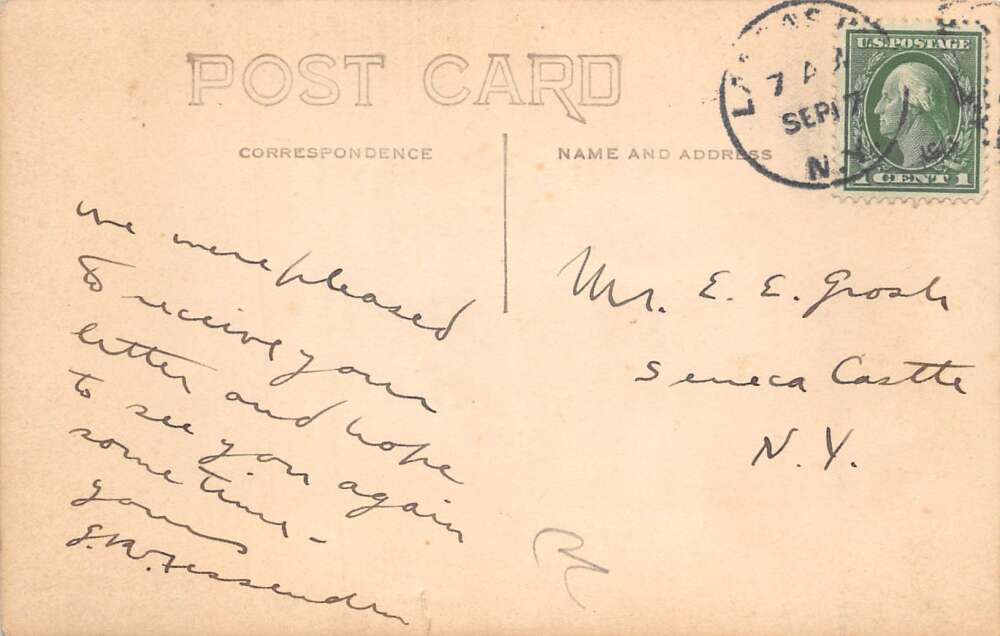 POST CARD
CORRESPONDENCE
NAME AND ADDRESS
7 A
SEP 17
N.Y.
U.S. POSTAGE
1 CENT 1
we were pleased
to receive your
letter and hope
to see you again
some time -
yours
E. W. Fessenden
Mr. E. E. Grosh
Seneca Castle
N. Y.